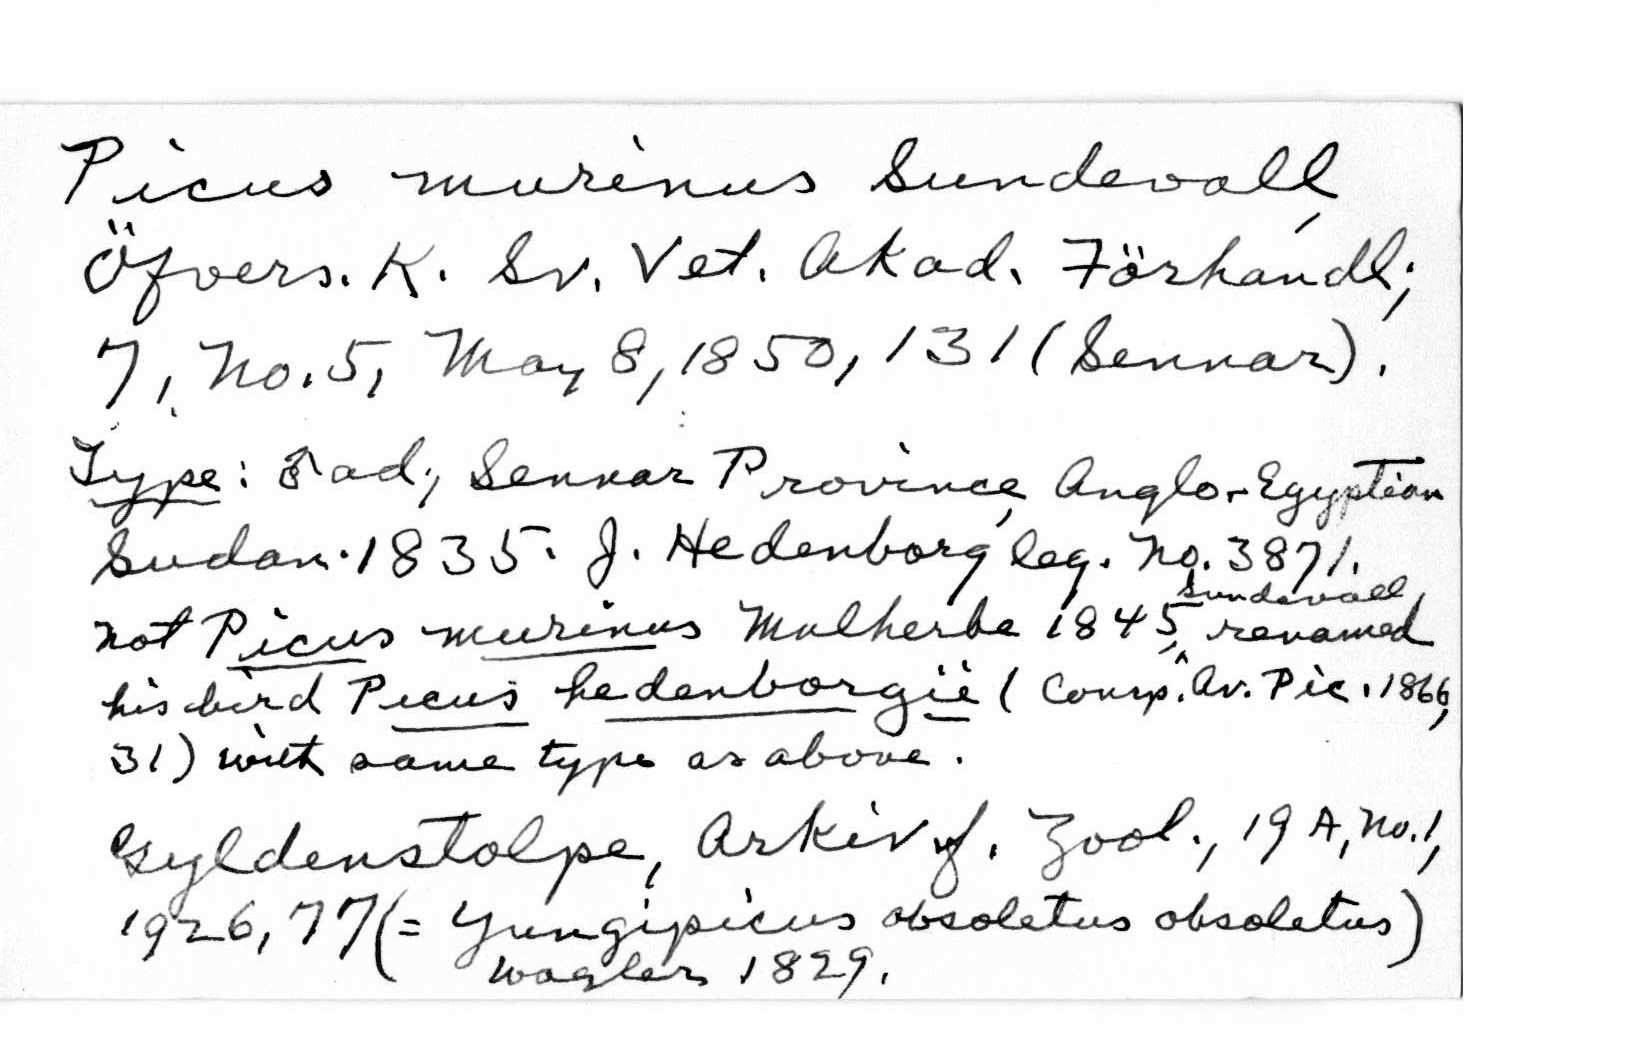 Picus murinus Sundevall,
Öfvers. K. Sv. Vet. Akad. Förhandl;
7, No. 5, May 8, 1850, 131 (Sennar).
Type: ♂ ad; Sennar Province, Anglo-Egyptian
Sudan. 1835. J. Hedenborg leg. No. 3871.
Sundevall,
not Picus murinus Malherbe 1845, ^ renamed
his bird Picus hedenborgii (Consp. Av. Pic. 1866,
31) with same type as above.
Gyldenstolpe, Arkiv f. Zool., 19 A, No. 1,
1926, 77 (= Yungipicus obsoletus obsoletus)
Wagler 1829.